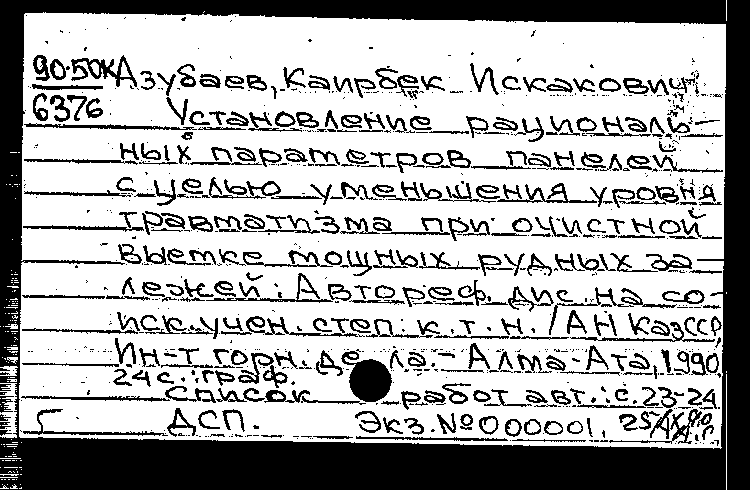 90-50К Азубаев, Каирбек Искакович
6376 Установление рациональ-
ных параметров панелей
с целью уменьшения уровня
травматизма при очистной
выемке мощных рудных за-
лежей: Автореф. дис. на со-
иск. учен. степ. к.т.н. /АН КазССР,
Ин-т горн. дела.- Алма-Ата, 1990
24 с.: граф.
Список работ авт.: с. 23-24
Г ДСП. Экз. № 000001.